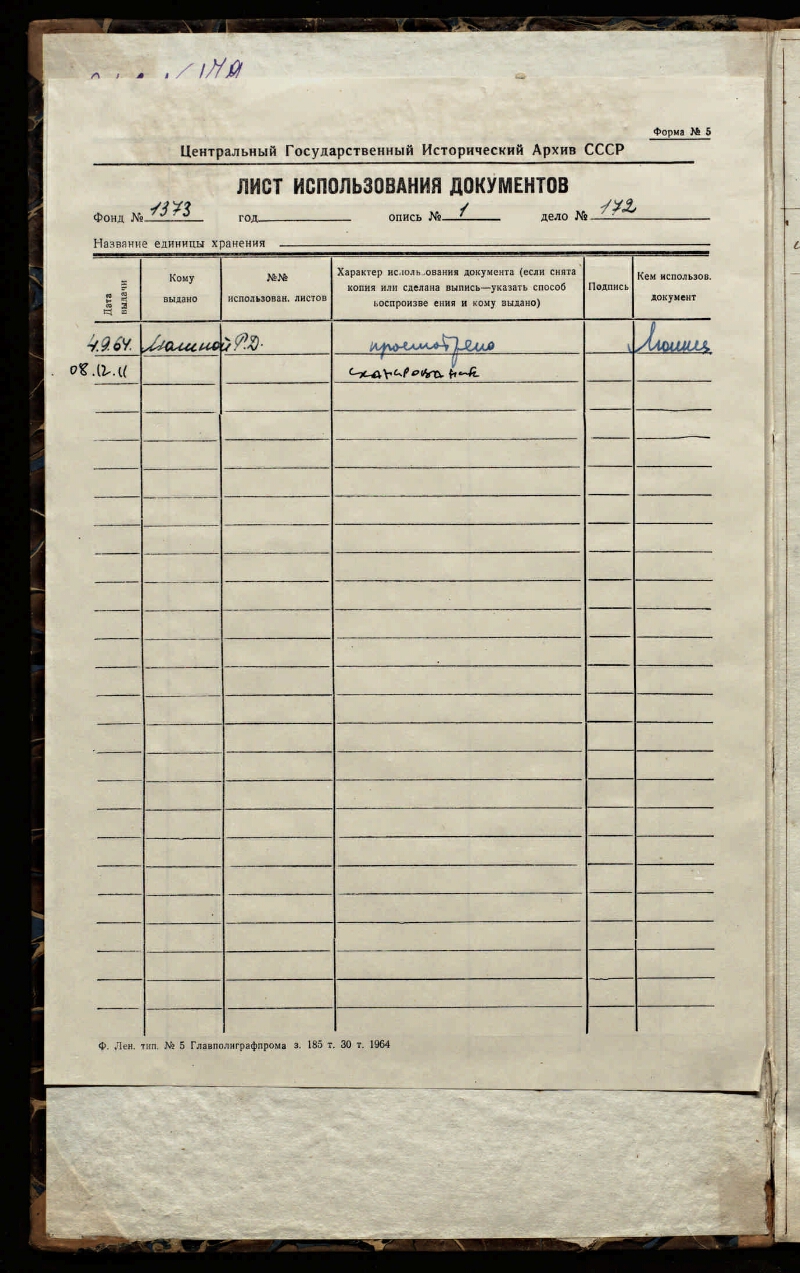 Форма № 5
Центральный Государственный Исторический Архив СССР
ЛИСТ ИСПОЛЬЗОВАНИЯ ДОКУМЕНТОВ
Фонд № 1373 год опись № 1 дело № 172
Название единицы хранения
Дата выдачи
Кому выдано
№№ использован. листов
Характер использования документа (если снята
копия или сделана выпись—указать способ
воспроизве ения и кому выдано)
Подпись
Кем использов. документ
4.9.64. просмотрено
08.12.11 сканирование
Ф. Лен. тип. № 5 Главполиграфпрома з. 185 т. 30 т. 1964